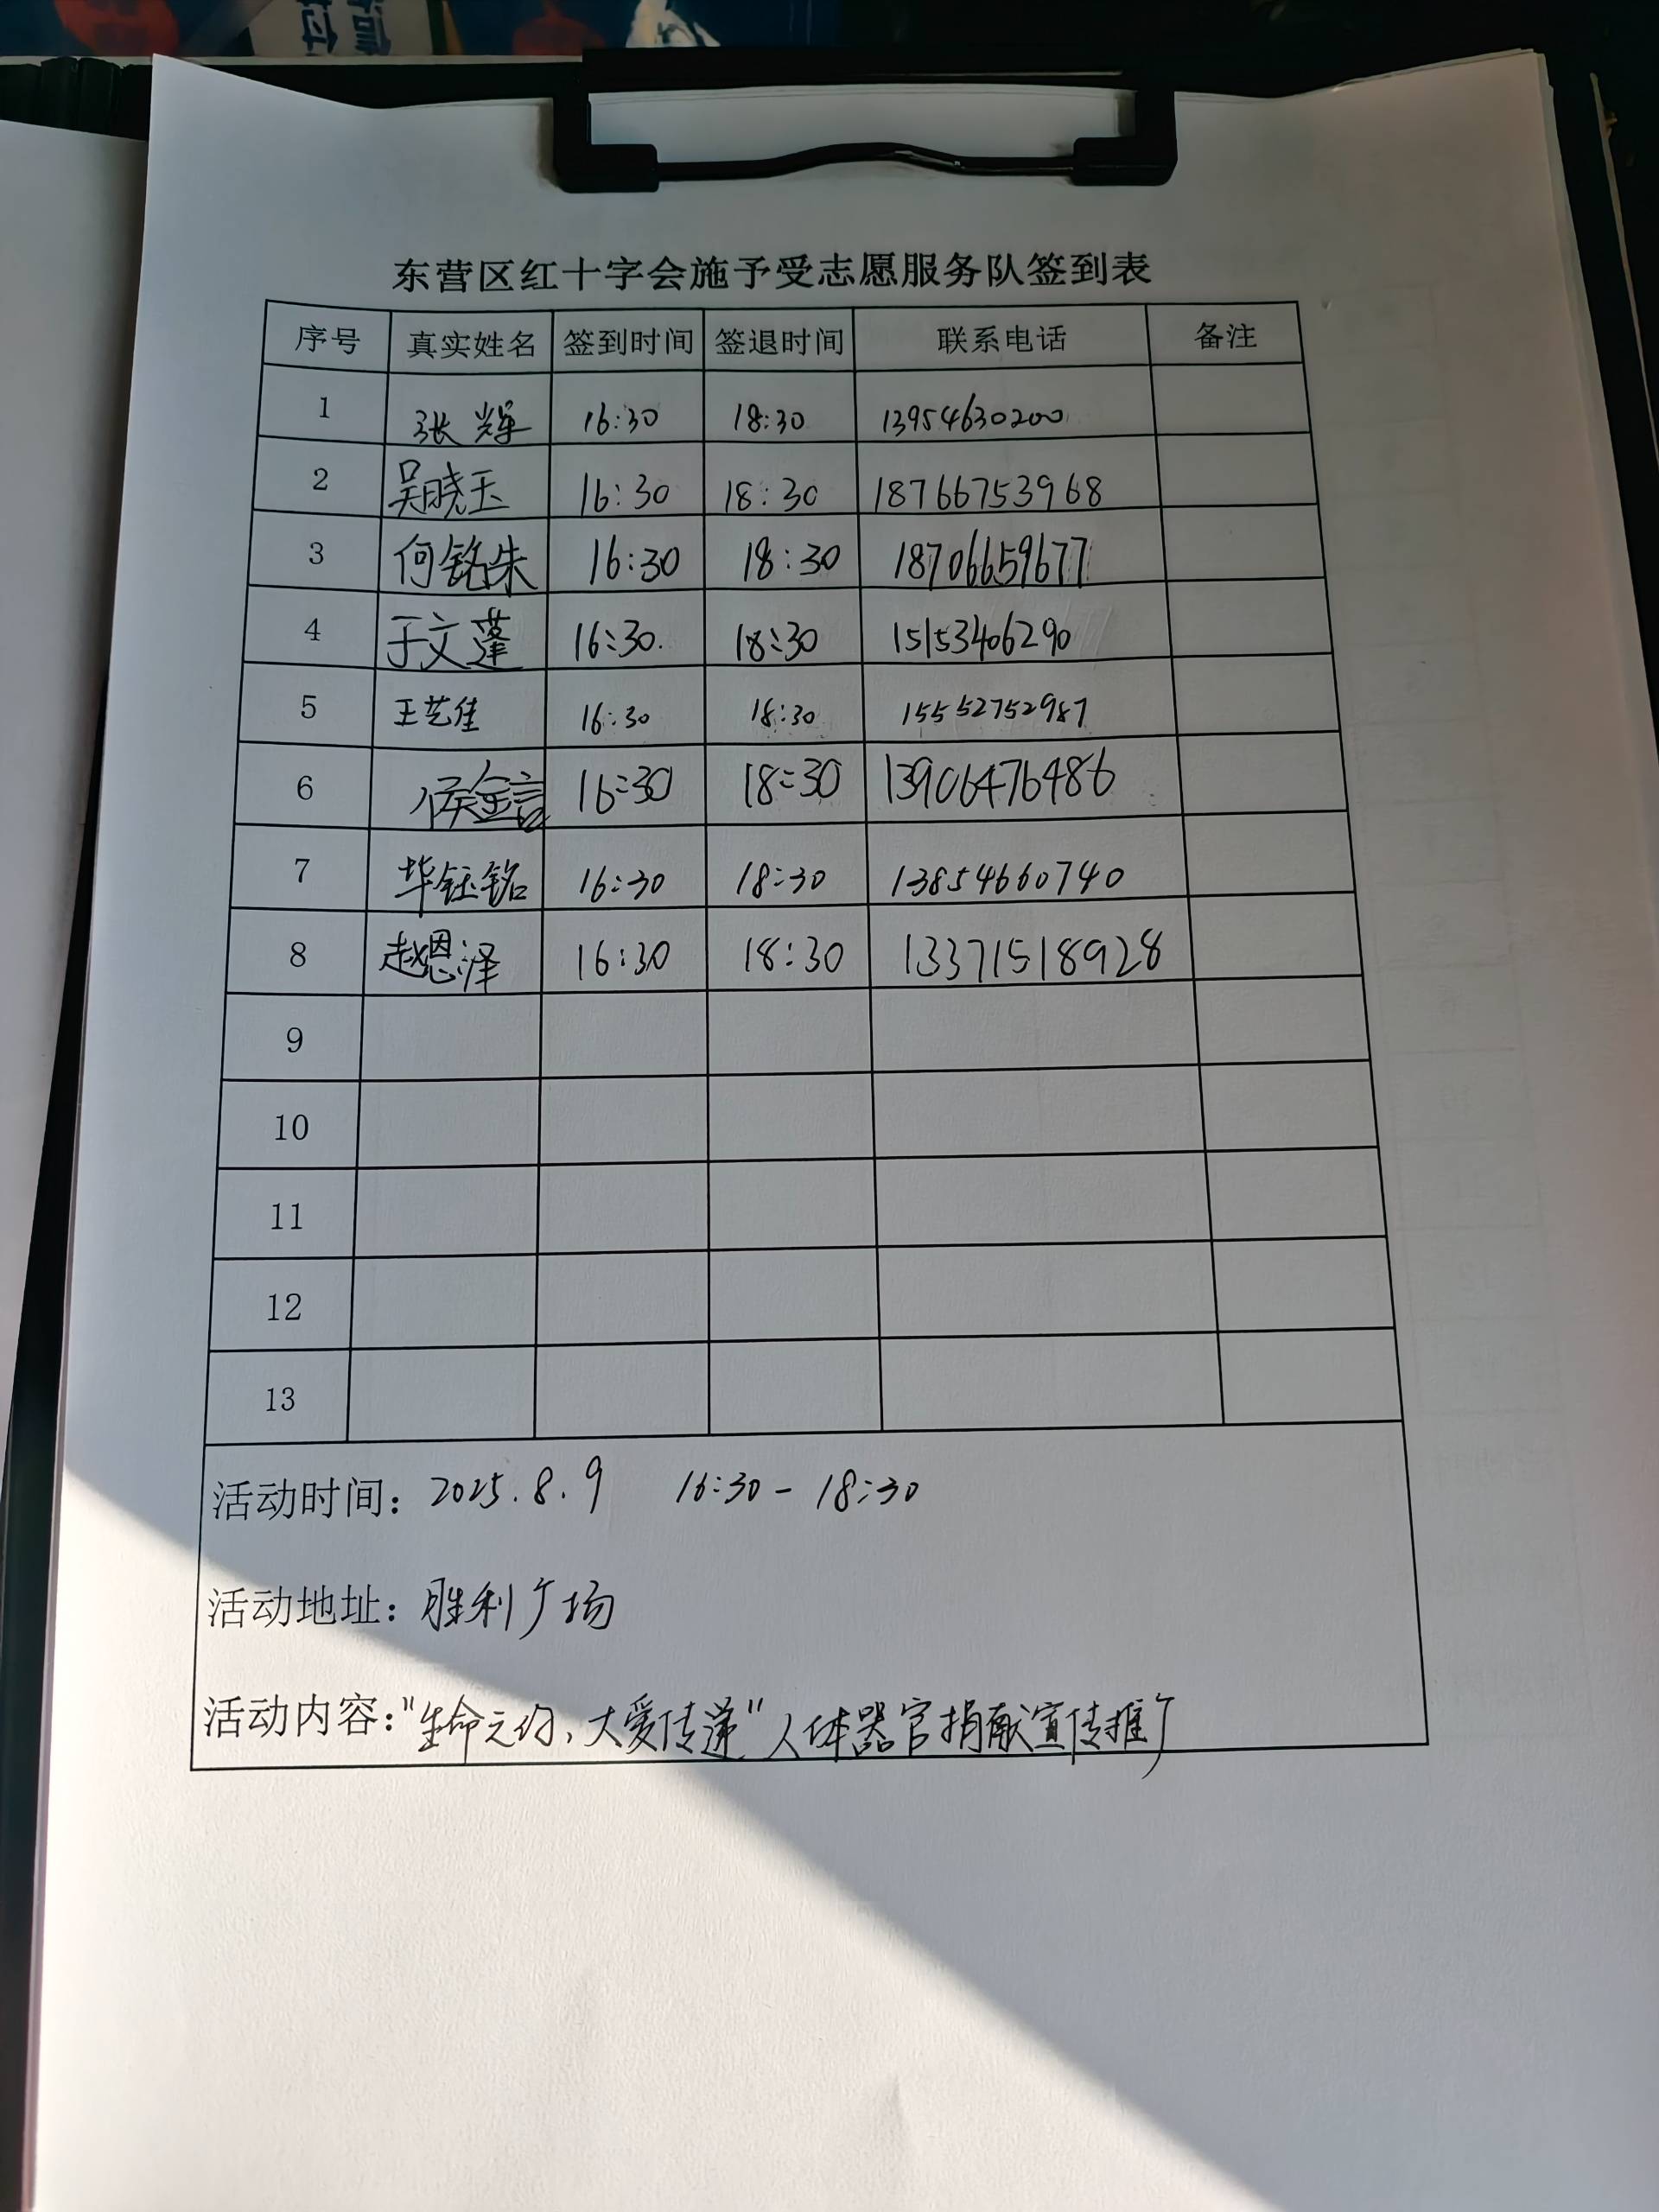 东营区红十字会施予受志愿服务队签到表
序号 真实姓名 签到时间 签退时间 联系电话 备注
1 张辉 16:30 18:30 13954630200
2 吴晓玉 16:30 18:30 18766753968
3 何铭朱 16:30 18:30 18706659677
4 于文蓬 16:30. 18:30 15153406290
5 王艺佳 16:30 18:30 15552752987
6 侯金言 16:30 18:30 13906476486
7 毕钰铭 16:30 18:30 13854660740
8 赵恩泽 16:30 18:30 13371518928
9
10
11
12
13
活动时间：2025.8.9 16:30-18:30
活动地址：胜利广场
活动内容："生命之约、大爱传递"人体器官捐献宣传推广